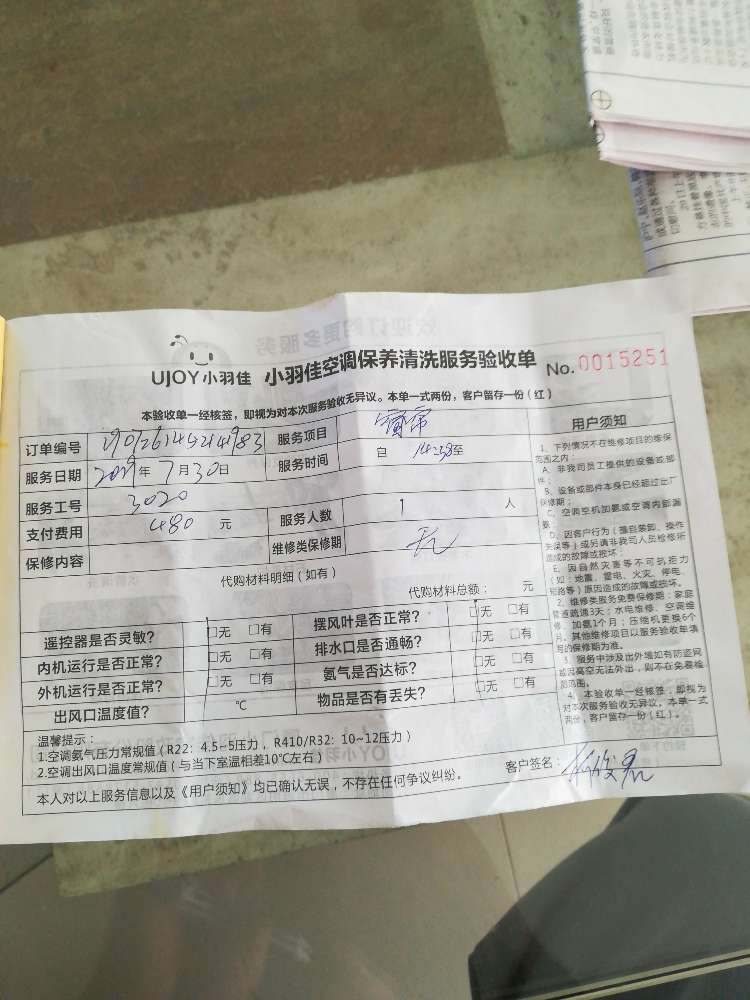 UJOY小羽佳 小羽佳空调保养清洗服务验收单 No.0015251
本验收单一经核签，即视为对本次服务验收无异议。本单一式两份，客户留存一份（红）
订单编号 服务项目
服务日期 2019年7月30日 服务时间 自 至
服务工号 3020
支付费用 480 元 服务人数 1 人
保修内容 维修类保修期 无
代购材料明细（如有） 代购材料总额： 元
遥控器是否灵敏？ □无 □有 摆风叶是否正常？ □无 □有
内机运行是否正常？ □无 □有 排水口是否通畅？ □无 □有
外机运行是否正常？ □无 □有 氨气是否达标？ □无 □有
出风口温度值？ ℃ 物品是否有丢失？ □无 □有
温馨提示：
1.空调氨气压力常规值（R22：4.5~5压力，R410/R32：10~12压力）
2.空调出风口温度常规值（与当下室温相差10℃左右）
本人对以上服务信息以及《用户须知》均已确认无误，不存在任何争议纠纷。
客户签名：
用户须知
1、下列情况不在维修项目的维保
范围之内：
A、非我司员工提供的设备或部
件；
B、设备或部件本身已经超过出厂
保修期；
C、空调空机加氨或空调内部漏
氨；
D、因客户行为（擅自装卸、操作
失误等）或另请非我司人员维修所
造成的故障或损坏；
E、因自然灾害等不可抗拒力
（如：地震、雷电、火灾、停电、
短路等）原因造成的故障或损坏。
2、维修类服务免费保修期：家庭
管道疏通3天；水电维修、空调维
修、加氨1个月；压缩机更换6个
月。其他维修项目以服务验收单填
写的保修期为准。
3、服务中涉及出外墙如有防盗网
或因高空无法外出，则不在免费检
范围。
4、本验收单一经核签，即视为
对本次服务验收无异议。本单一式
两份，客户留存一份（红）。